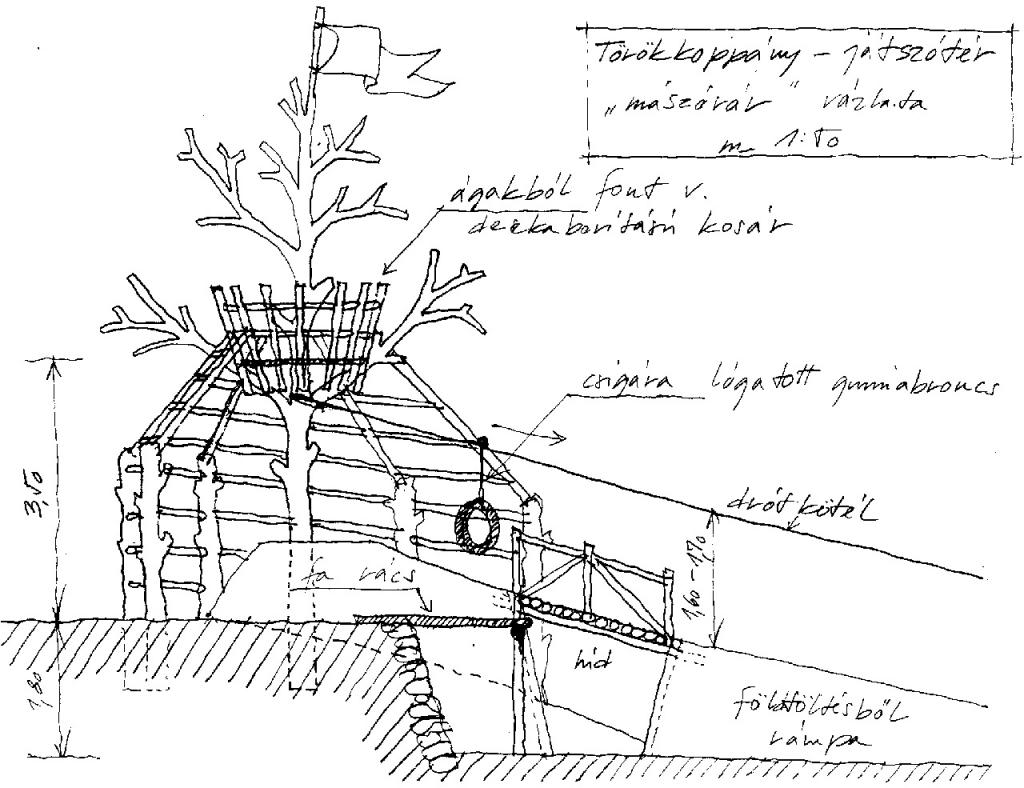 Törökkoppány – játszótér
„mászóvár" vázlata
m 1:50
ágakból font v.
deszkaborítású kosár
csigára lógatott gumiabroncs
3,50
drótkötél
1,60–1,70
fa rács
híd
1,80
földfeltöltésből
rámpa